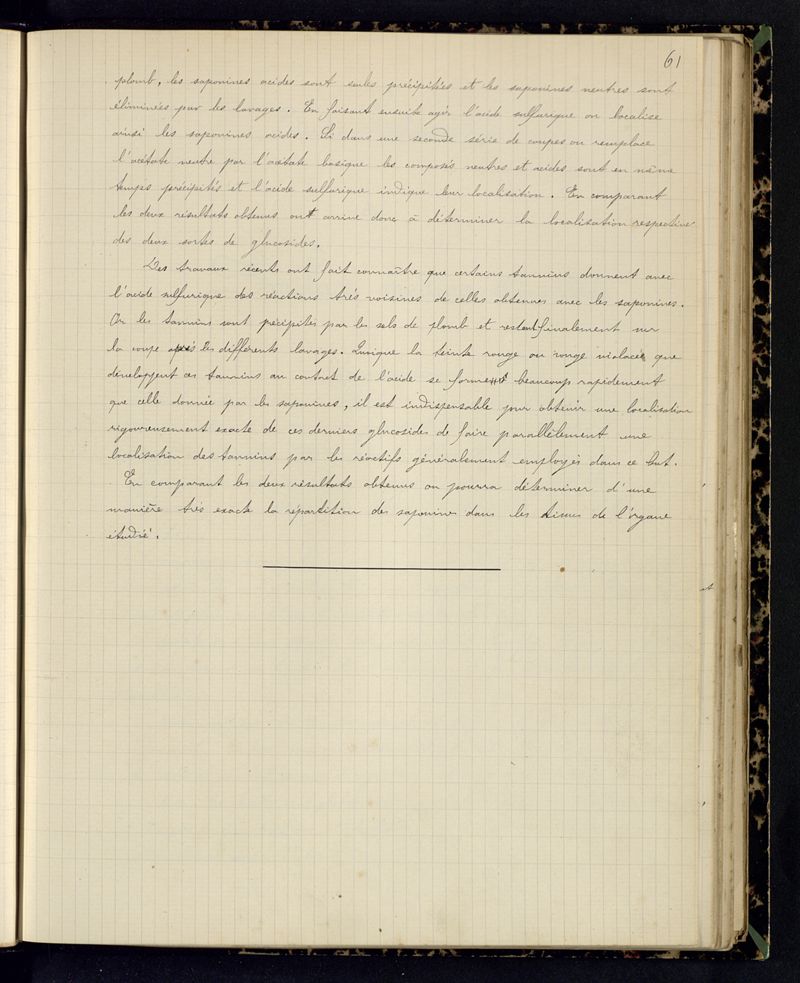 61
plomb, les saponines acides sont seules précipitées et les saponines neutres sont
éliminées par les lavages. En faisant ensuite agir l'acide sulfurique on localise
ainsi les saponines acides. Si dans une seconde série de coupes on remplace
l'acétate neutre par l'acétate basique les composés neutres et acides sont en même
temps précipités et l'acide sulfurique indique leur localisation. En comparant
les deux résultats obtenus ont arrive donc à déterminer la localisation respective
des deux sortes de glucosides.
Des travaux récents ont fait connaître que certains tannins donnent avec
l'acide sulfurique des réactions très voisines de celles obtenues avec les saponines.
Or les tannins sont précipités par les sels de plomb et restent finalement sur
la coupe après les différents lavages. Puisque la teinte rouge ou rouge violacée que
développent ces tannins au contact de l'acide se forme beaucoup rapidement
que celle donnée par les saponines, il est indispensable pour obtenir une localisation
rigoureusement exacte de ces derniers glucosides de faire parallèlement une
localisation des tannins par les réactifs généralement employés dans ce but.
En comparant les deux résultats obtenus on pourra déterminer d'une
manière très exacte la répartition des saponines dans les tissus de l'organe
étudié.